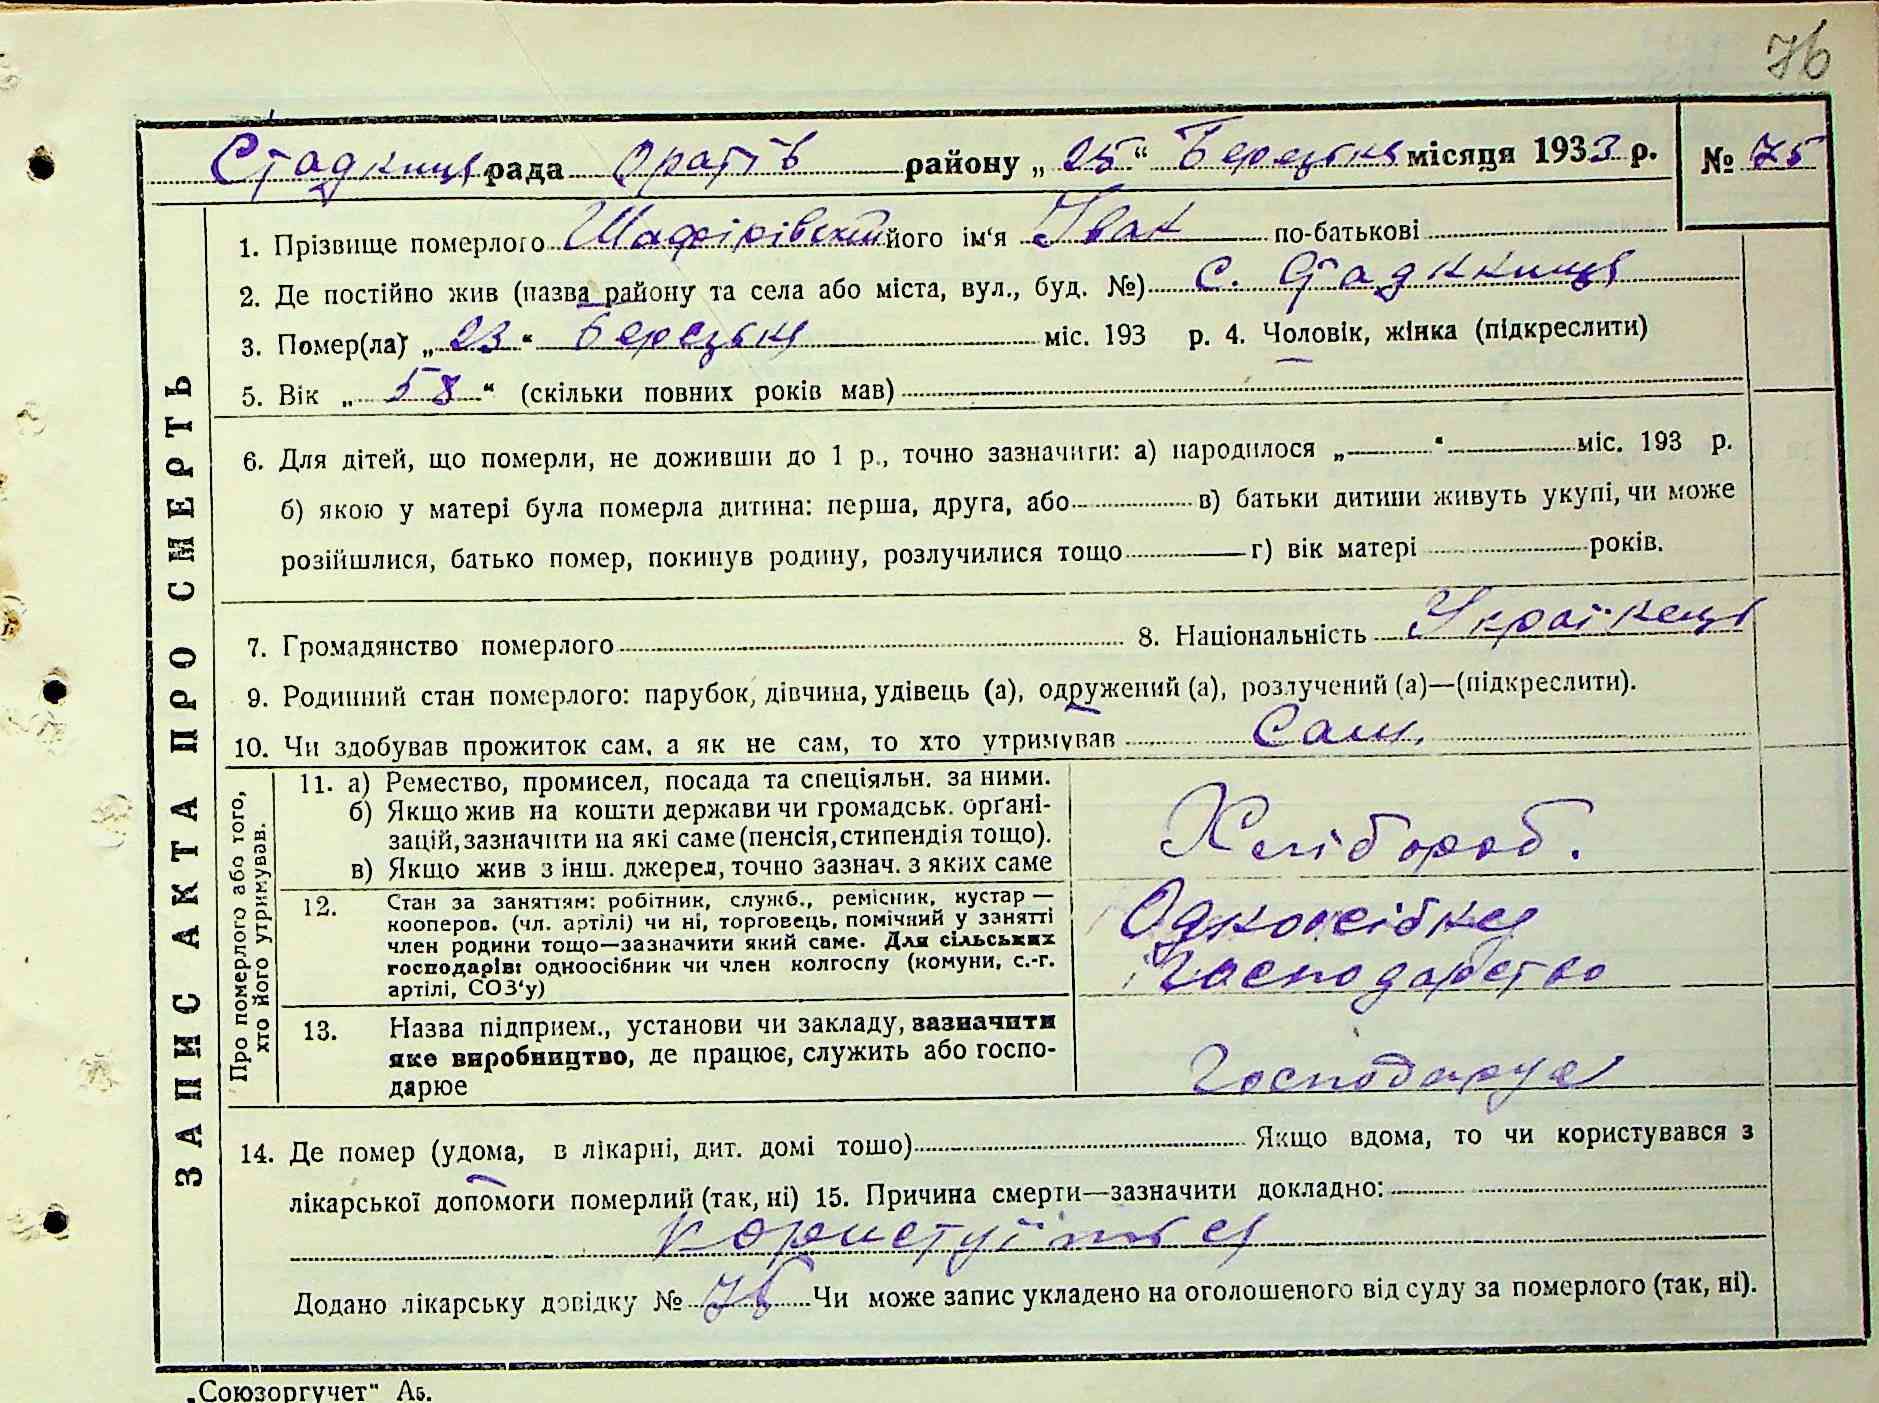 76
Стадниця рада Оратів району „ 25 “ Березня місяця 1933 р. № 75
1. Прізвище померлого Шафірівський його ім‘я Іван по-батькові
2. Де постійно жив (назва району та села або міста, вул., буд. №) с. Стадниця
3. Помер(ла) „ 23 “ Березня міс. 193 р. 4. Чоловік, жінка (підкреслити)
5. Вік „ 58 “ (скільки повних років мав)
6. Для дітей, що померли, не доживши до 1 р., точно зазначити: а) народилося „ “ міс. 193 р.
б) якою у матері була померла дитина: перша, друга, або в) батьки дитини живуть укупі, чи може
розійшлися, батько помер, покинув родину, розлучилися тощо г) вік матері років.
7. Громадянство померлого 8. Національність Українець
9. Родинний стан померлого: парубок, дівчина, удівець (а), одружений (а), розлучений (а)—(підкреслити).
10. Чи здобував прожиток сам, а як не сам, то хто утримував Сам.
ЗАПИС АКТА ПРО СМЕРТЬ
Про померлого або того,
хто його утримував.
11. а) Ремество, промисел, посада та спеціяльн. за ними.
б) Якщо жив на кошти держави чи громадськ. орґані-
зацій, зазначити на які саме (пенсія, стипендія тощо).
в) Якщо жив з інш. джерел, точно зазнач. з яких саме
Хлібороб.
12. Стан за заняттям: робітник, служб., ремісник, кустар —
кооперов. (чл. артілі) чи ні, торговець, помічний у занятті
член родини тощо—зазначити який саме. Для сільських
господарів: одноосібник чи член колгоспу (комуни, с.-г.
артілі, СОЗ‘у)
Одноосібне
Господарство
13. Назва підприєм., установи чи закладу, зазначити
яке виробництво, де працює, служить або госпо-
дарює
Господарує
14. Де помер (удома, в лікарні, дит. домі тощо) Якщо вдома, то чи користувався з
лікарської допомоги померлий (так, ні) 15. Причина смерти—зазначити докладно:
Додано лікарську довідку № Чи може запис укладено на оголошеного від суду за померлого (так, ні).
„Союзоргучет“ А5.